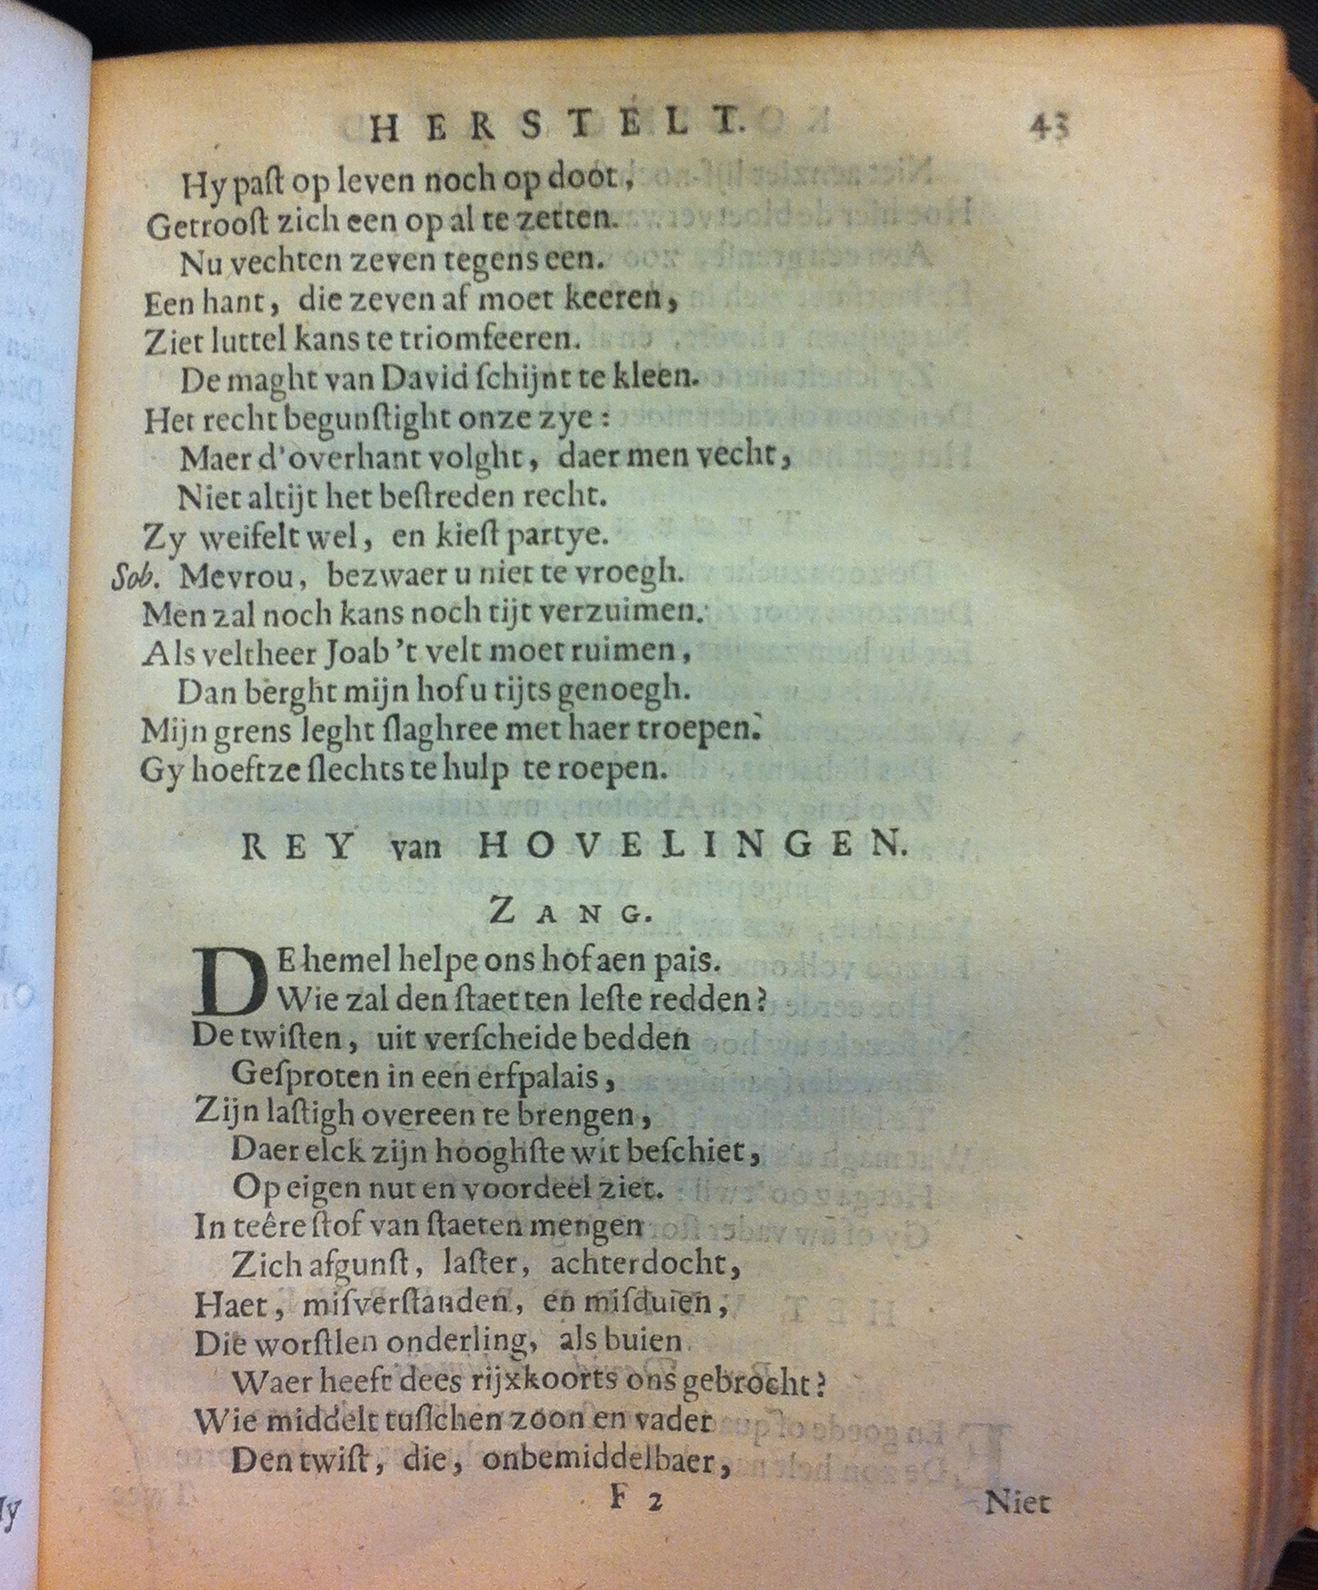 HERSTELT. 43
Hy paſt op leven noch op doot,
Getrooſt zich een op al te zetten.
Nu vechten zeven tegens een.
Een hant, die zeven af moet keeren,
Ziet luttel kans te triomfeeren.
De maght van David ſchijnt te kleen.
Het recht begunſtight onze zye:
Maer d'overhant volght, daer men vecht,
Niet altijt het beſtreden recht.
Zy weifelt wel, en kieſt partye.
Sob. Mevrou, bezwaer u niet te vroegh.
Men zal noch kans noch tijt verzuimen.
Als veltheer Joab 't velt moet ruimen,
Dan berght mijn hof u tijts genoegh.
Mijn grens leght ſlaghree met haer troepen.
Gy hoeftze ſlechts te hulp te roepen.
REY van HOVELINGEN.
ZANG.
DE hemel helpe ons hof aen pais.
Wie zal den ſtaet ten leſte redden?
De twiſten, uit verſcheide bedden
Geſproten in een erfpalais,
Zijn laſtigh overeen te brengen,
Daer elck zijn hooghſte wit beſchiet,
Op eigen nut en voordeel ziet.
In teêre ſtof van ſtaeten mengen
Zich afgunſt, laſter, achterdocht,
Haet, miſverſtanden, en miſduien,
Die worſtlen onderling, als buien.
Waer heeft dees rijxkoorts ons gebrocht?
Wie middelt tuſſchen zoon en vader
Den twiſt, die, onbemiddelbaer,
F 2 Niet